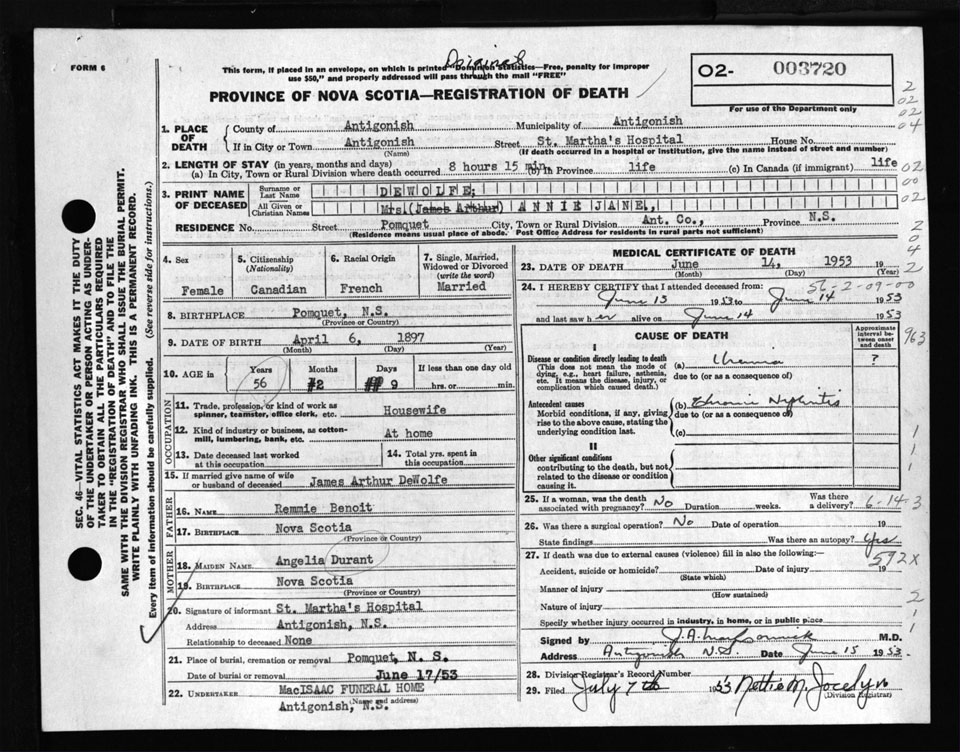 FORM 6
Original
This form, if placed in an envelope, on which is printed "Dominion Statistics—Free, penalty for improper
use $50," and properly addressed will pass through the mail "FREE"
02- 003720
For use of the Department only
PROVINCE OF NOVA SCOTIA—REGISTRATION OF DEATH
1. PLACE OF DEATH
County of Antigonish Municipality of Antigonish
If in City or Town Antigonish Street St. Martha's Hospital House No.
(Name) (If death occurred in a hospital or institution, give the name instead of street and number)
2. LENGTH OF STAY (in years, months and days)
(a) In City, Town or Rural Division where death occurred 8 hours 15 min. (b) In Province life (c) In Canada (if immigrant) life
3. PRINT NAME OF DECEASED
Surname or Last Name DEWOLFE:
All Given or Christian Names Mrs. (James Arthur) ANNIE JANE,
RESIDENCE No. Street Pomquet City, Town or Rural Division Ant. Co., Province N.S.
(Residence means usual place of abode. Post Office Address for residents in rural parts not sufficient)
4. Sex
Female
5. Citizenship
(Nationality)
Canadian
6. Racial Origin
French
7. Single, Married, Widowed or Divorced
(write the word)
Married
8. BIRTHPLACE Pomquet, N.S.
(Province or Country)
9. DATE OF BIRTH April 6, 1897
(Month) (Day) (Year)
10. AGE in Years Months Days If less than one day old
56 2 9 hrs. or min.
OCCUPATION
11. Trade, profession, or kind of work as
spinner, teamster, office clerk, etc. Housewife
12. Kind of industry or business, as cotton-
mill, lumbering, bank, etc. At home
13. Date deceased last worked
at this occupation
14. Total yrs. spent in
this occupation
15. If married give name of wife
or husband of deceased James Arthur DeWolfe
FATHER
16. NAME Remmie Benoit
17. BIRTHPLACE Nova Scotia
(Province or Country)
MOTHER
18. MAIDEN NAME Angelia Durant
19. BIRTHPLACE Nova Scotia
(Province or Country)
20. Signature of informant St. Martha's Hospital
Address Antigonish, N.S.
Relationship to deceased None
21. Place of burial, cremation or removal Pomquet, N. S.
Date of burial or removal June 17/53
22. UNDERTAKER MacISAAC FUNERAL HOME
(Name and address)
Antigonish, N.S.
MEDICAL CERTIFICATE OF DEATH
23. DATE OF DEATH June 14, 1953
(Month) (Day) (Year)
56-2-09-00
24. I HEREBY CERTIFY that I attended deceased from:
June 13 1953 to June 14 1953
and last saw her alive on June 14 1953
CAUSE OF DEATH
Approximate interval between onset and death
I
Disease or condition directly leading to death
(This does not mean the mode of
dying, e.g., heart failure, asthenia,
etc. It means the disease, injury, or
complication which caused death.)
(a) Uremia ?
due to (or as a consequence of)
Antecedent causes
Morbid conditions, if any, giving
rise to the above cause, stating the
underlying condition last.
(b) Chronic Nephritis
due to (or as a consequence of)
(c)
II
Other significant conditions
contributing to the death, but not
related to the disease or condition
causing it.
25. If a woman, was the death
associated with pregnancy? No Duration weeks. Was there
a delivery?
6-14-3
26. Was there a surgical operation? No Date of operation 19
State findings Was there an autopsy? Yes
27. If death was due to external causes (violence) fill in also the following:
592X
Accident, suicide or homicide? Date of injury 19
(State which)
Manner of injury
(How sustained)
Nature of injury
Specify whether injury occurred in industry, in home, or in public place
Signed by J.A. MacCormick M.D.
Address Antigonish N.S. Date June 15 1953
28. Division Registrar's Record Number
29. Filed July 7th 1953 Nettie M. Jocelyn
(Division Registrar)
SEC. 46—VITAL STATISTICS ACT MAKES IT THE DUTY
OF THE UNDERTAKER OR PERSON ACTING AS UNDER-
TAKER TO OBTAIN ALL THE PARTICULARS REQUIRED
IN THE "REGISTRATION OF DEATH" AND TO FILE THE
SAME WITH THE DIVISION REGISTRAR WHO SHALL ISSUE THE BURIAL PERMIT.
WRITE PLAINLY WITH UNFADING INK. THIS IS A PERMANENT RECORD.
Every item of information should be carefully supplied. (See reverse side for instructions.)
2
02
02
04
02
00
02
2
0
4
2
963
1
1
1
2
1